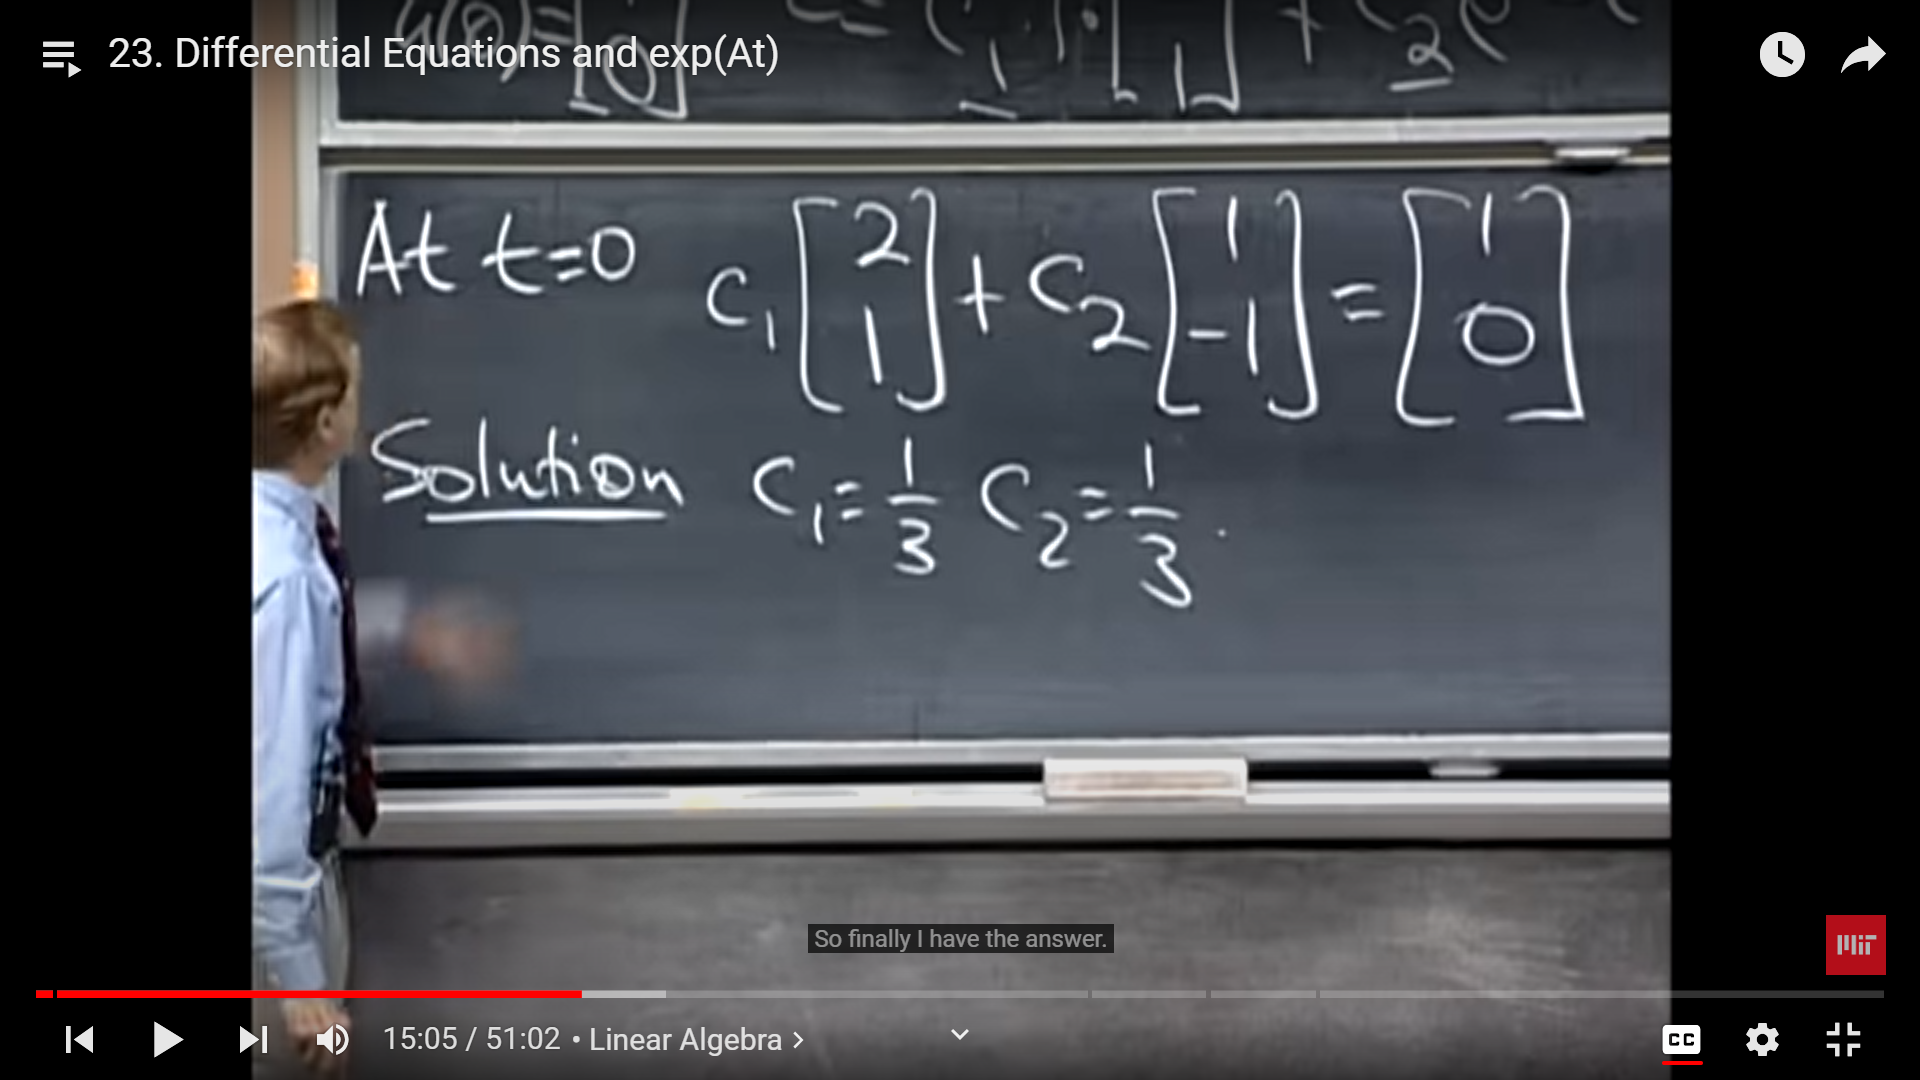 23. Differential Equations and exp(At)
At t=0 c₁ [2 1] + c₂ [1 -1] = [1 0]
Solution c₁ = 1/3 c₂ = 1/3.
So finally I have the answer.
MIT
15:05 / 51:02 • Linear Algebra >
CC